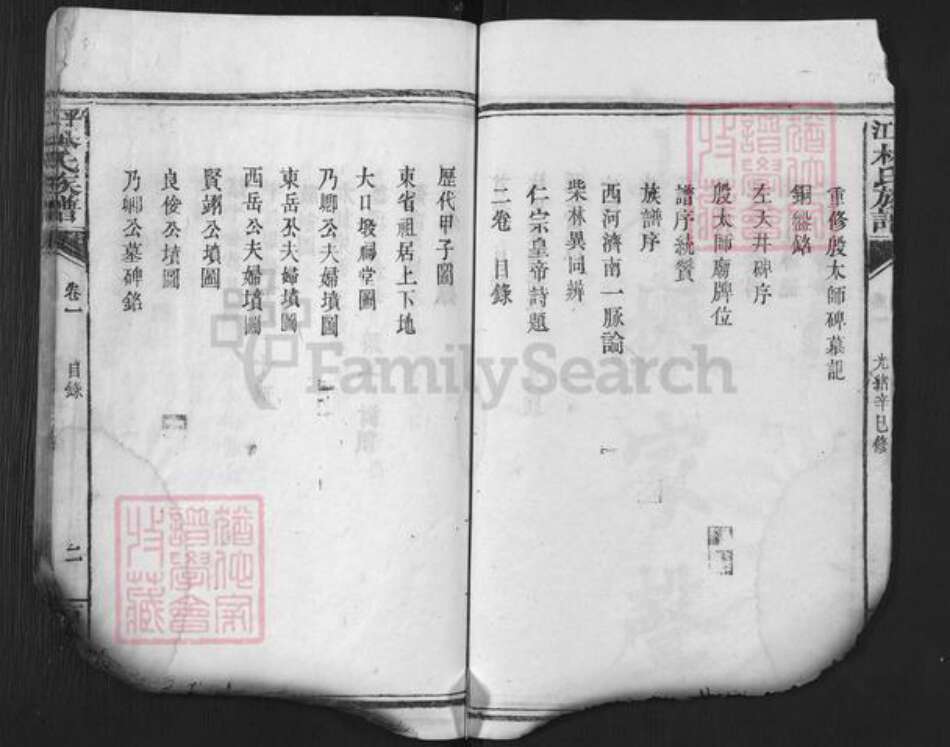 江林氏族譜
光緒辛巳修
重修殷太師碑墓記
銅盤銘
左大井碑序
殷太師廟牌位
譜序統贊
族譜序
西河濟南一脈論
柴林異同辨
仁宗皇帝詩題
二卷目錄
歷代甲子圖
東省祖居上下地
大口墩祠堂圖
乃鄉公夫婦墳圖
東岳公夫婦墳圖
西岳公夫婦墳圖
賢公墳圖
良俊公墳圖
乃鄉公墓碑銘
平林氏族譜
卷一
目錄
二
譜學會
收藏
FamilySearch